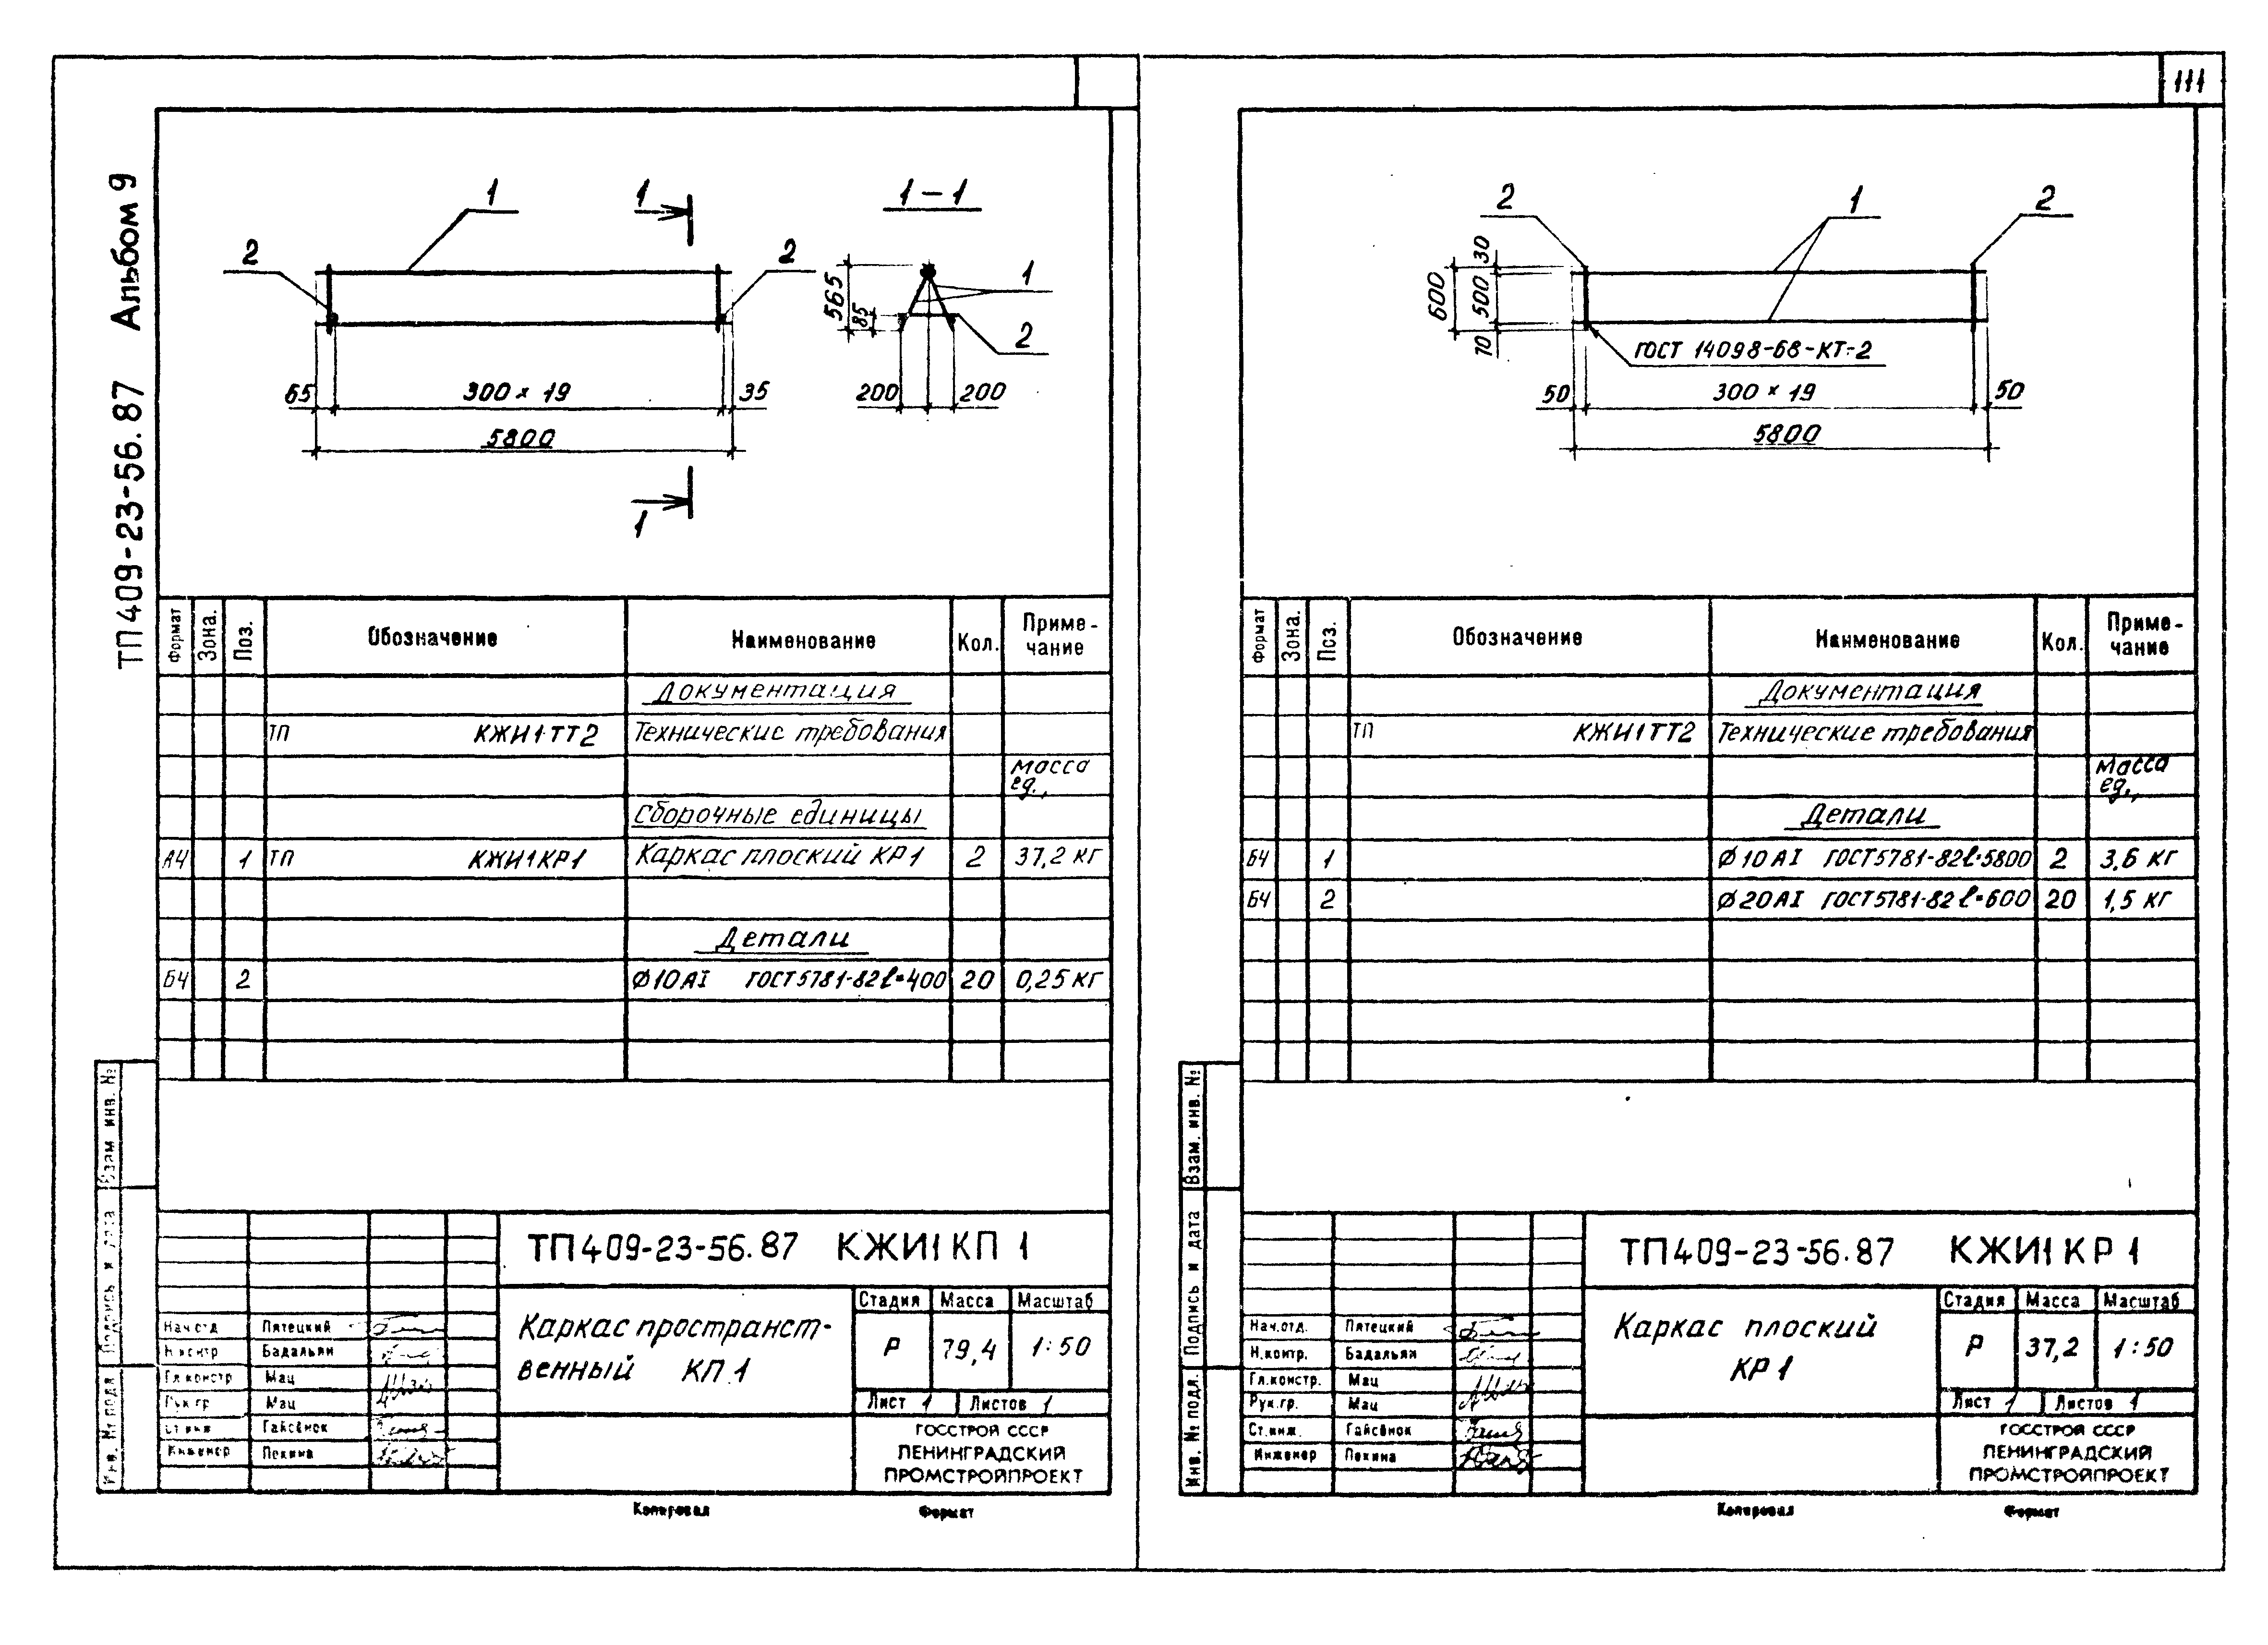 111
ТП 409-23-56.87 Альбом 9
1
1
1-1
2
2
565
85
1
2
65
300 × 19
35
200
200
5800
1
Формат
Зона.
Поз.
Обозначение
Наименование
Кол.
Приме-
чание
Документация
ТП КЖИ1 ТТ2 Технические требования
масса
ед.,
Сборочные единицы
А4 1 ТП КЖИ1КР1 Каркас плоский КР1 2 37,2 кг
Детали
БЧ 2 Ø10АI ГОСТ5781-82 ℓ=400 20 0,25 кг
Взам. инв. №
Подпись и дата
Инв. № подл.
ТП 409-23-56.87 КЖИ1 КП 1
Каркас пространст-
венный КП 1
Стадия Масса Масштаб
Р 79,4 1:50
Лист 1 Листов 1
Нач.отд Пятецкий
Н.контр Бадальян
Гл.констр Мац
Рук.гр Мац
Ст.инж Гайсёнок
Инженер Пекина
ГОССТРОЙ СССР
ЛЕНИНГРАДСКИЙ
ПРОМСТРОЙПРОЕКТ
Копировал Формат
2
1
2
600
30
500
70
ГОСТ 14098-68-КТ-2
50
300 × 19
50
5800
Формат
Зона.
Поз.
Обозначение
Наименование
Кол.
Приме-
чание
Документация
ТП КЖИ1ТТ2 Технические требования
Масса
ед.,
Детали
БЧ 1 Ø10АI ГОСТ5781-82 ℓ=5800 2 3,6 кг
БЧ 2 Ø20АI ГОСТ5781-82 ℓ=600 20 1,5 кг
Взам. инв. №
Подпись и дата
Инв. № подл.
ТП 409-23-56.87 КЖИ1 КР 1
Каркас плоский
КР 1
Стадия Масса Масштаб
Р 37,2 1:50
Лист 1 Листов 1
Нач.отд. Пятецкий
Н.контр. Бадальян
Гл.констр. Мац
Рук.гр. Мац
Ст.инж. Гайсёнок
Инженер Пекина
ГОССТРОЙ СССР
ЛЕНИНГРАДСКИЙ
ПРОМСТРОЙПРОЕКТ
Копировал Формат